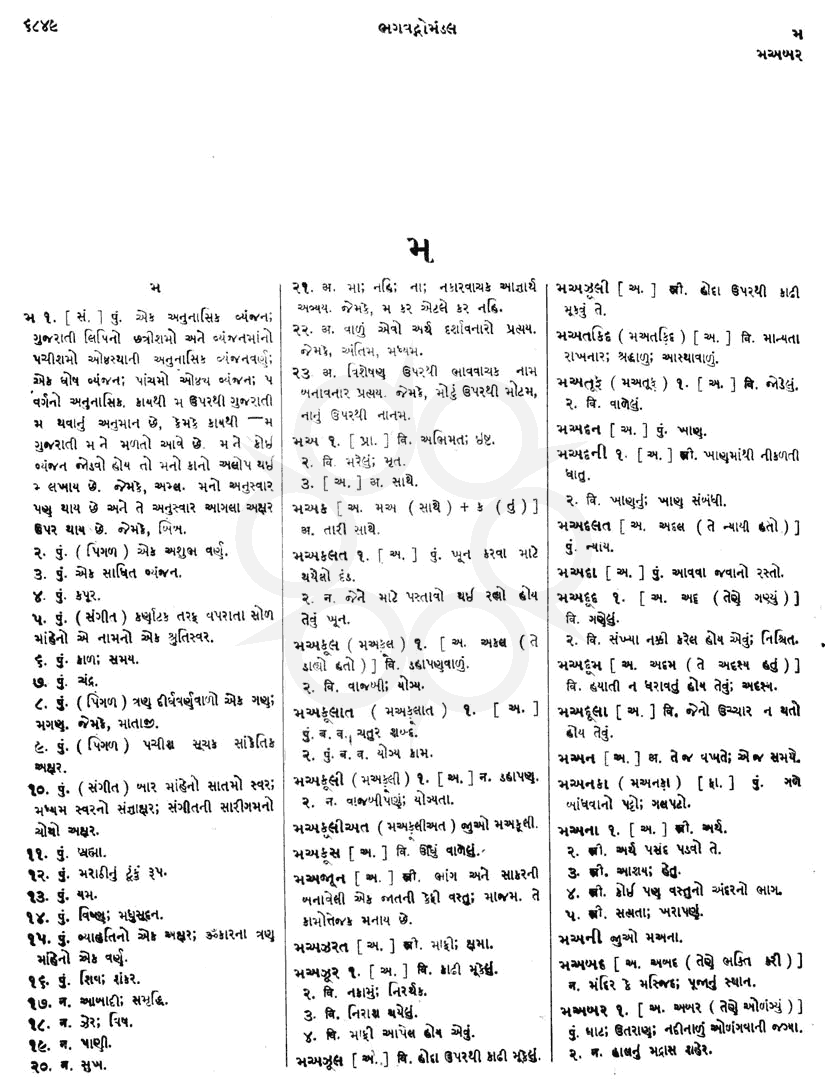 ૬૮૪૯
ભગવદ્ગોમંડલ
મ
મઅબર
મ
મ
મ ૧. [ સં. ] પું. એક અનુનાસિક વ્યંજન;
ગુજરાતી લિપિનો છત્રીશમો અને વ્યંજનમાંનો
પચીશમો ઓષ્ઠસ્થાની અનુનાસિક વ્યંજનવર્ણ;
એક ઘોષ વ્યંજન; પાંચમો ઓષ્ઠ્ય વ્યંજન; પ
વર્ગનો અનુનાસિક. કાયથી મ ઉપરથી ગુજરાતી
મ થવાનું અનુમાન છે, કેમકે કાયથી મ
ગુજરાતી મ ને મળતો આવે છે. મ ને કોઈ
વ્યંજન જોડવો હોય તો મનો કાનો અલોપ થઈ
મ્ લખાય છે. જેમકે, અમ્લ. મનો અનુસ્વાર
પણ થાય છે અને તે અનુસ્વાર આગલા અક્ષર
ઉપર થાય છે. જેમકે, બિંબ.
૨. પું. ( પિંગળ ) એક અશુભ વર્ણ.
૩. પું. એક સાધિત વ્યંજન.
૪. પું. કપૂર.
૫. પું. ( સંગીત ) કર્ણાટક તરફ વપરાતા સોળ
માંહેનો એ નામનો એક શ્રુતિસ્વર.
૬. પું. કાળ; સમય.
૭. પું. ચંદ્ર.
૮. પું. ( પિંગળ ) ત્રણ દીર્ઘવર્ણવાળો એક ગણ;
મગણ. જેમકે, માતાજી.
૯. પું. ( પિંગળ ) પચીશ સૂચક સાંકેતિક
અક્ષર.
૧૦. પું. ( સંગીત ) બાર માંહેનો સાતમો સ્વર;
મધ્યમ સ્વરનો સંજ્ઞાક્ષર; સંગીતની સારીગમનો
ચોથો અક્ષર.
૧૧. પું. બ્રહ્મા.
૧૨. પું. મરાઠીનું ટૂંકું રૂપ.
૧૩. પું. યમ.
૧૪. પું. વિષ્ણુ; મધુસૂદન.
૧૫. પું. વ્યાહૃતિનો એક અક્ષર; ૐકારના ત્રણ
માંહેનો એક વર્ણ.
૧૬. પું. શિવ; શંકર.
૧૭. ન. આબાદી; સમૃદ્ધિ.
૧૮. ન. ઝેર; વિષ.
૧૯. ન. પાણી.
૨૦. ન. સુખ.
૨૧. અ. મા; નહિ; ના; નકારવાચક આજ્ઞાર્થ
અવ્યય. જેમકે, મ કર એટલે કર નહિ.
૨૨. અ. વાળું એવો અર્થ દર્શાવનારો પ્રત્યય.
જેમકે, અંતિમ, મધ્યમ.
૨૩ અ. વિશેષણ ઉપરથી ભાવવાચક નામ
બનાવનાર પ્રત્યય. જેમકે, મોટું ઉપરથી મોટમ,
નાનું ઉપરથી નાનમ.
મઅ ૧. [ પ્રા. ] વિ. અભિમત; ઇષ્ટ.
૨. વિ. મરેલું; મૃત.
૩. [ અ. ] અ. સાથે.
મઅક [ અ. મઅ ( સાથે ) + ક ( તું ) ]
અ. તારી સાથે.
મઅકલત ૧. [ અ. ] પું. ખૂન કરવા માટે
થયેલો દંડ.
૨. ન. જેને માટે પસ્તાવો થઈ રહ્યો હોય
તેવું ખૂન.
મઅકૂલ ( મઅકૂલ ) ૧. [ અ. અકલ ( તે
ડાહ્યો હતો ) ] વિ. ડહાપણવાળું.
૨. વિ. વાજબી; યોગ્ય.
મઅકૂલાત ( મઅકૂલાત ) ૧. [ અ. ]
પું. બ. વ. ચતુર શબ્દ.
૨. પું. બ. વ. યોગ્ય કામ.
મઅકૂલી ( મઅકૂલી ) ૧. [ અ. ] ન. ડહાપણ.
૨. ન. વાજબીપણું; યોગ્યતા.
મઅકૂલીઅત ( મઅકૂલીઅત ) જુઓ મઅકૂલી.
મઅકૂસ [ અ. ] વિ. ઊંધું વાળેલું.
મઅજૂન [ અ. ] સ્ત્રી. ભાંગ અને સાકરની
બનાવેલી એક જાતની કેફી વસ્તુ; માજમ. તે
કામોત્તેજક મનાય છે.
મઅઝરત [ અ. ] સ્ત્રી. માફી; ક્ષમા.
મઅઝૂર ૧. [ અ. ] વિ. કાઢી મૂકેલું.
૨. વિ. નકામું; નિરર્થક.
૩. વિ. નિરાશ થયેલું.
૪. વિ. માફી આપેલ હોય એવું.
મઅઝૂલ [ અ. ] વિ. હોદ્દા ઉપરથી કાઢી મૂકેલું.
મઅઝૂલી [ અ. ] સ્ત્રી. હોદ્દા ઉપરથી કાઢી
મૂકવું તે.
મઅતકિદ ( મઅતકિદ ) [ અ. ] વિ. માન્યતા
રાખનાર; શ્રદ્ધાળુ; આસ્થાવાળું.
મઅતૂફ ( મઅતૂફ ) ૧. [ અ. ] વિ. જોડેલું.
૨. વિ. વાળેલું.
મઅદન [ અ. ] પું. ખાણ.
મઅદની ૧. [ અ. ] સ્ત્રી. ખાણમાંથી નીકળતી
ધાતુ.
૨. વિ. ખાણનું; ખાણ સંબંધી.
મઅદલત [ અ. અદલ ( તે ન્યાયી હતો ) ]
પું. ન્યાય.
મઅદા [ અ. ] પું. આવવા જવાનો રસ્તો.
મઅદૂદ ૧. [ અ. અદ્દ ( તેણે ગણ્યું ) ]
વિ. ગણેલું.
૨. વિ. સંખ્યા નક્કી કરેલ હોય એવું; નિશ્ચિત.
મઅદૂમ [ અ. અદમ ( તે અદૃશ્ય હતું ) ]
વિ. હયાતી ન ધરાવતું હોય તેવું; અદૃશ્ય.
મઅદૂલા [ અ. ] વિ. જેનો ઉચ્ચાર ન થતો
હોય તેવું.
મઅન [ અ. ] અ. તે જ વખતે; એ જ સમયે.
મઅનકા ( મઅનકા ) [ ફા. ] પું. ગળે
બાંધવાનો પટ્ટો; ગલપટો.
મઅના ૧. [ અ. ] સ્ત્રી. અર્થ.
૨. સ્ત્રી. અર્થ પસંદ પડવો તે.
૩. સ્ત્રી. આશય; હેતુ.
૪. સ્ત્રી. કોઈ પણ વસ્તુનો અંદરનો ભાગ.
૫. સ્ત્રી. સત્યતા; ખરાપણું.
મઅની જુઓ મઅના.
મઅબદ [ અ. અબદ ( તેણે ભક્તિ કરી ) ]
ન. મંદિર કે મસ્જિદ; પૂજાનું સ્થાન.
મઅબર ૧. [ અ. અબર ( તેણે ઓળંગ્યું ) ]
પું. ઘાટ; ઉતરાણ; નદીનાળું ઓળંગવાની જગ્યા.
૨. ન. હાલનું મદ્રાસ શહેર.